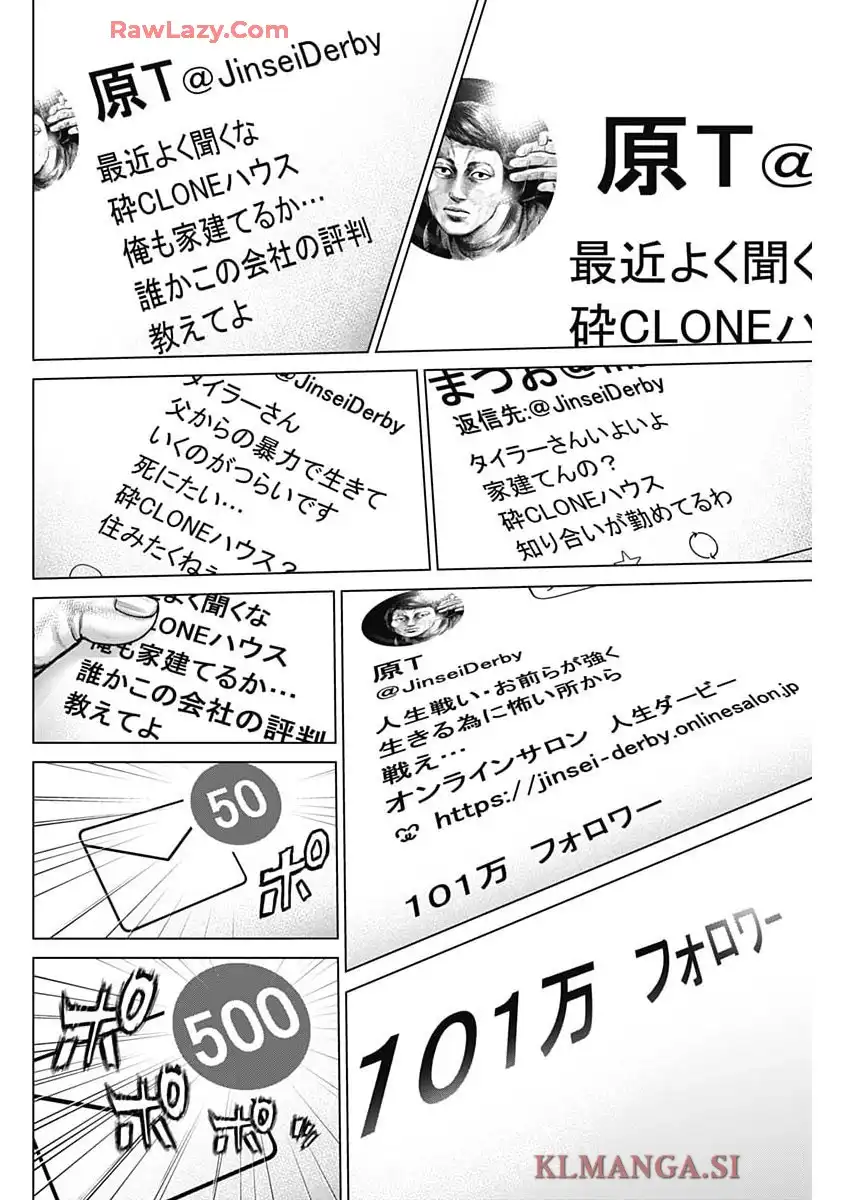 RawLazy.Com
原T@
最近よく聞く
砕CLONEハ
原T@JinseiDerby
最近よく聞くな
砕CLONEハウス
俺も家建てるか…
誰かこの会社の評判
教えてよ
まつお@
返信先:@JinseiDerby
タイラーさんいよいよ
家建てんの？
砕CLONEハウス
知り合いが勤めてるわ
@JinseiDerby
タイラーさん
父からの暴力で生きて
いくのがつらいです
死にたい…
砕CLONEハウス？
住みたくねぇ
よく聞くな
LONEハウス
俺も家建てるか…
誰かこの会社の評判
教えてよ
原T
@JinseiDerby
人生戦い・お前らが強く
生きる為に怖い所から
戦え…
オンラインサロン 人生ダービー
https://jinsei-derby.onlinesalon.jp
101万 フォロワー
50
ポ
101万 フォロワー
500
ポ
ポ
ポ
KLMANGA.SI